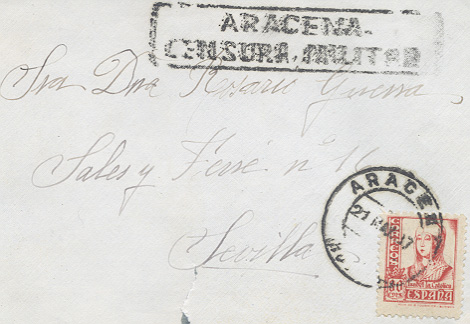 ARACENA.
CENSURA MILITAR
Sra Dna Rosario Guerra
Sales y Ferré nº 16
Sevilla
ARACEN
21
Isabel la Católica
30
CTS
ESPAÑA